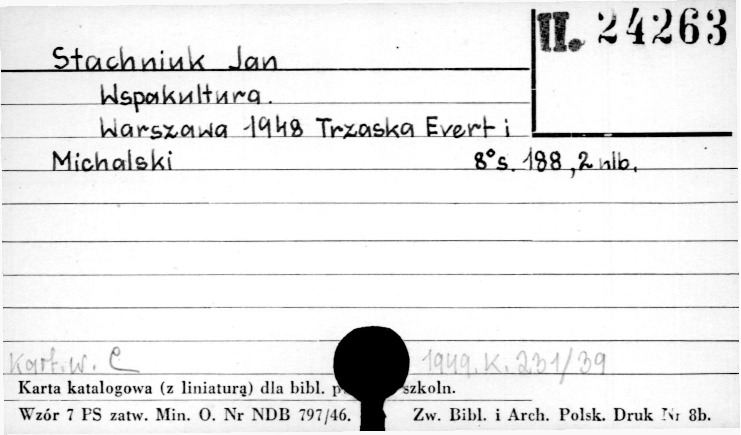 II. 24263
Stachniuk Jan
Wspakultura.
Warszawa 1948 Trzaska Evert i
Michalski 8° s. 188, 2 nlb.
Kart. w. C 1949. K. 231/39
Karta katalogowa (z liniaturą) dla bibl. szkoln.
Wzór 7 PS zatw. Min. O. Nr NDB 797/46. Zw. Bibl. i Arch. Polsk. Druk Nr 8b.